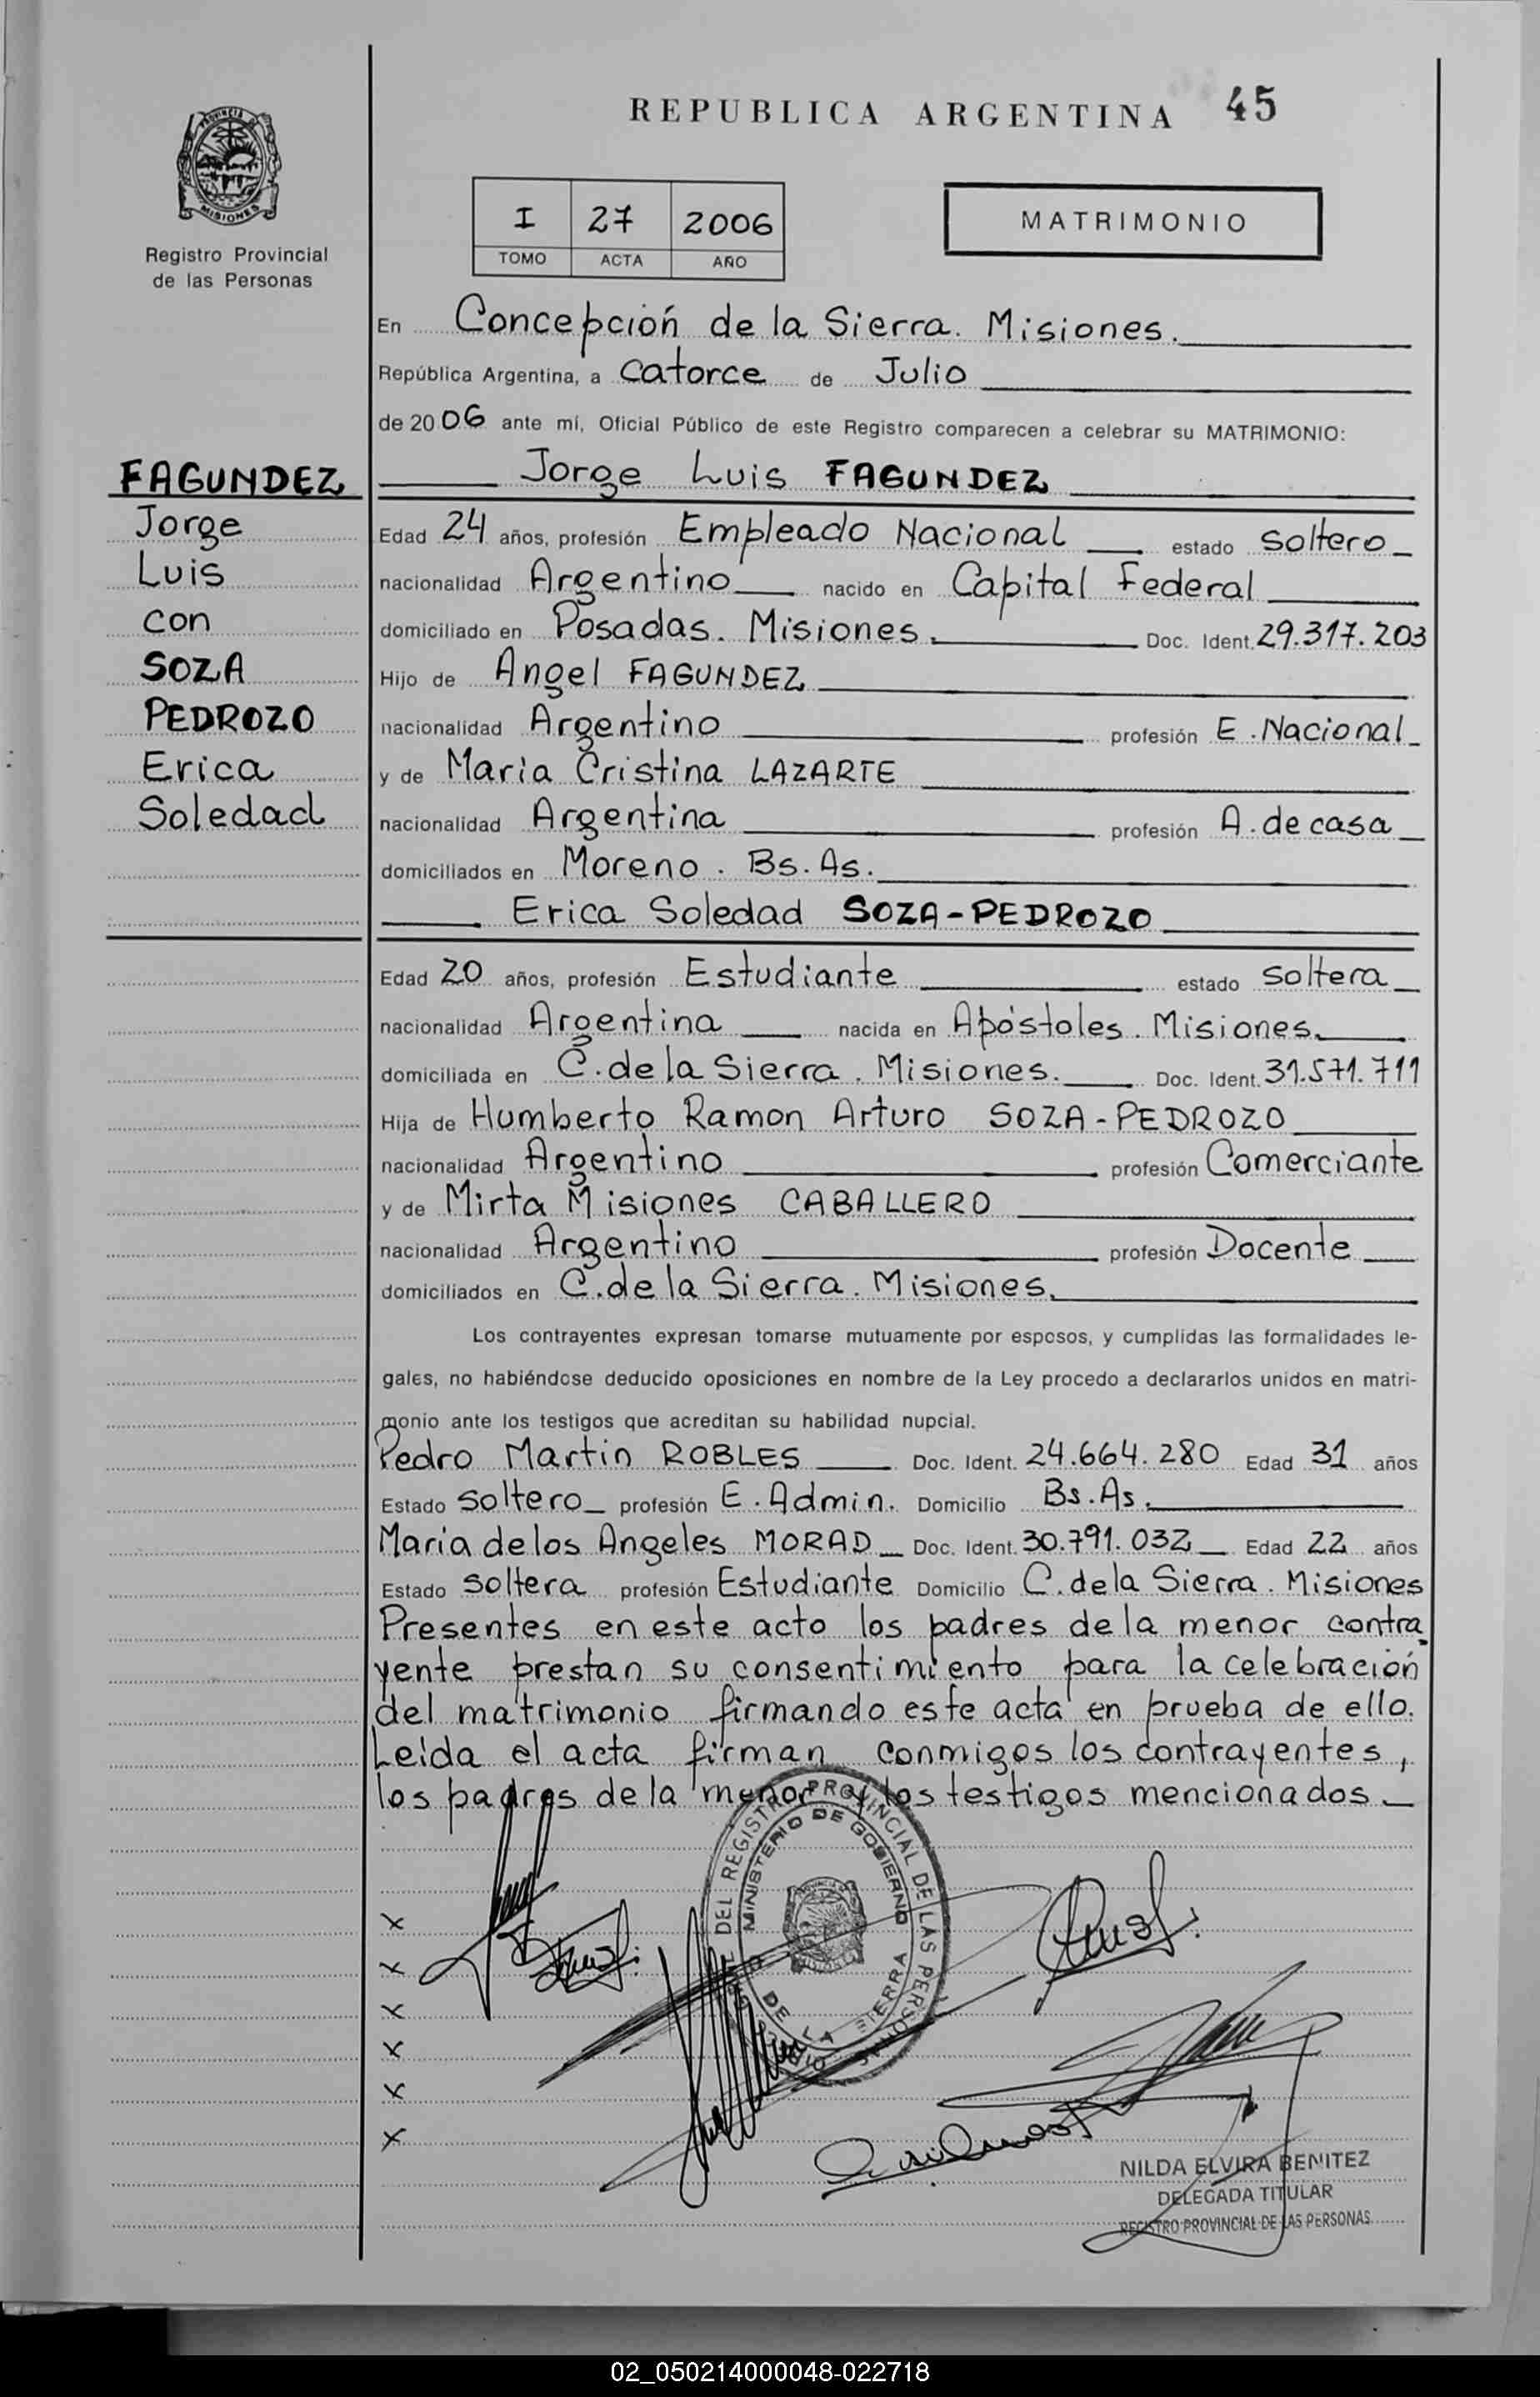 REPUBLICA ARGENTINA 45
PROVINCIA DE
MISIONES
Registro Provincial
de las Personas
I 27 2006
TOMO ACTA AÑO
MATRIMONIO
En Concepción de la Sierra. Misiones.
República Argentina, a Catorce de Julio
de 2006 ante mí, Oficial Público de este Registro comparecen a celebrar su MATRIMONIO:
FAGUNDEZ
Jorge
Luis
con
SOZA
PEDROZO
Erica
Soledad
Jorge Luis FAGUNDEZ
Edad 24 años, profesión Empleado Nacional estado soltero
nacionalidad Argentino nacido en Capital Federal
domiciliado en Posadas. Misiones. Doc. Ident. 29.317.203
Hijo de Angel FAGUNDEZ
nacionalidad Argentino profesión E. Nacional
y de Maria Cristina LAZARTE
nacionalidad Argentina profesión A. de casa
domiciliados en Moreno. Bs. As.
Erica Soledad SOZA-PEDROZO
Edad 20 años, profesión Estudiante estado soltera
nacionalidad Argentina nacida en Apóstoles. Misiones.
domiciliada en C. de la Sierra. Misiones. Doc. Ident. 31.571.711
Hija de Humberto Ramon Arturo SOZA-PEDROZO
nacionalidad Argentino profesión Comerciante
y de Mirta Misiones CABALLERO
nacionalidad Argentino profesión Docente
domiciliados en C. de la Sierra. Misiones.
Los contrayentes expresan tomarse mutuamente por esposos, y cumplidas las formalidades le-
gales, no habiéndose deducido oposiciones en nombre de la Ley procedo a declararlos unidos en matri-
monio ante los testigos que acreditan su habilidad nupcial.
Pedro Martin ROBLES Doc. Ident. 24.664.280 Edad 31 años
Estado soltero profesión E. Admin. Domicilio Bs. As.
Maria de los Angeles MORAD Doc. Ident. 30.791.032 Edad 22 años
Estado soltera profesión Estudiante Domicilio C. de la Sierra. Misiones
Presentes en este acto los padres de la menor contra
yente prestan su consentimiento para la celebración
del matrimonio firmando este acta en prueba de ello.
Leida el acta firman conmigos los contrayentes,
los padres de la menor y los testigos mencionados
DEL REGISTRO PROVINCIAL DE LAS PERSONAS
MINISTERIO DE GOBIERNO
DE LA SIERRA
x
x
x
x
x
x
NILDA ELVIRA BENITEZ
DELEGADA TITULAR
REGISTRO PROVINCIAL DE LAS PERSONAS
02_050214000048-022718